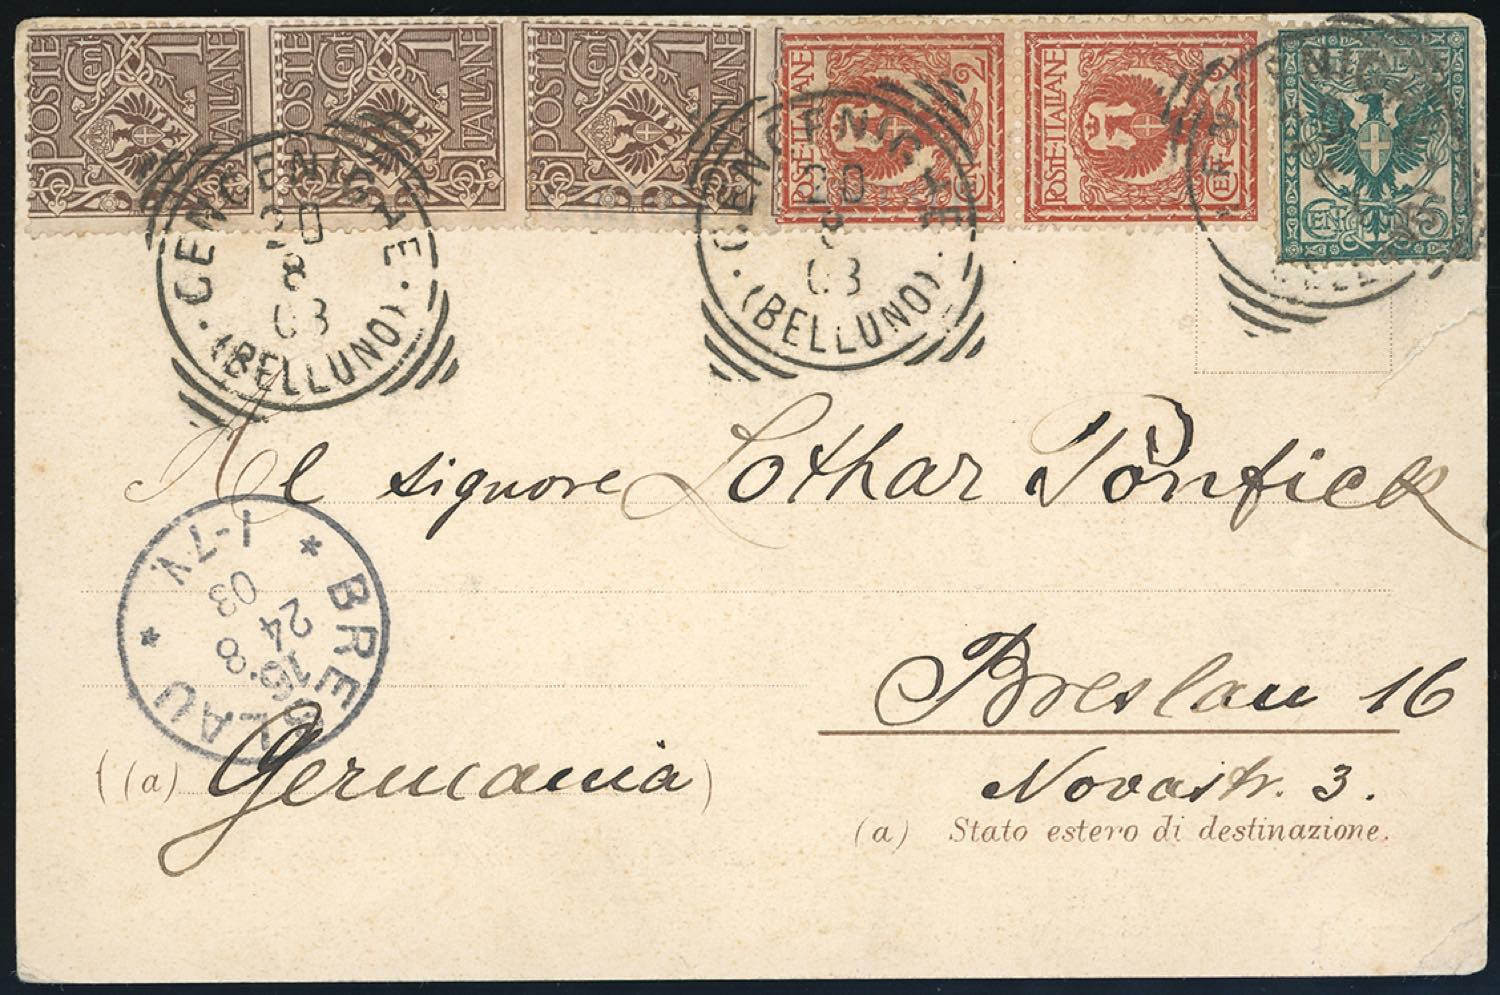 POSTE Cent 1 ITALIANE
POSTE Cent 1 ITALIANE
POSTE Cent 1 ITALIANE
POSTE ITALIANE 2 CENT
POSTE ITALIANE CENT
CENCENIGHE
20
8
03
(BELLUNO)
CENCENIGHE
20
8
03
(BELLUNO)
Al signore Lothar Ponfick
BRESLAU
16.
24
8
03
1-7N
Breslau 16
(a) Germania
Novastr. 3.
(a) Stato estero di destinazione.